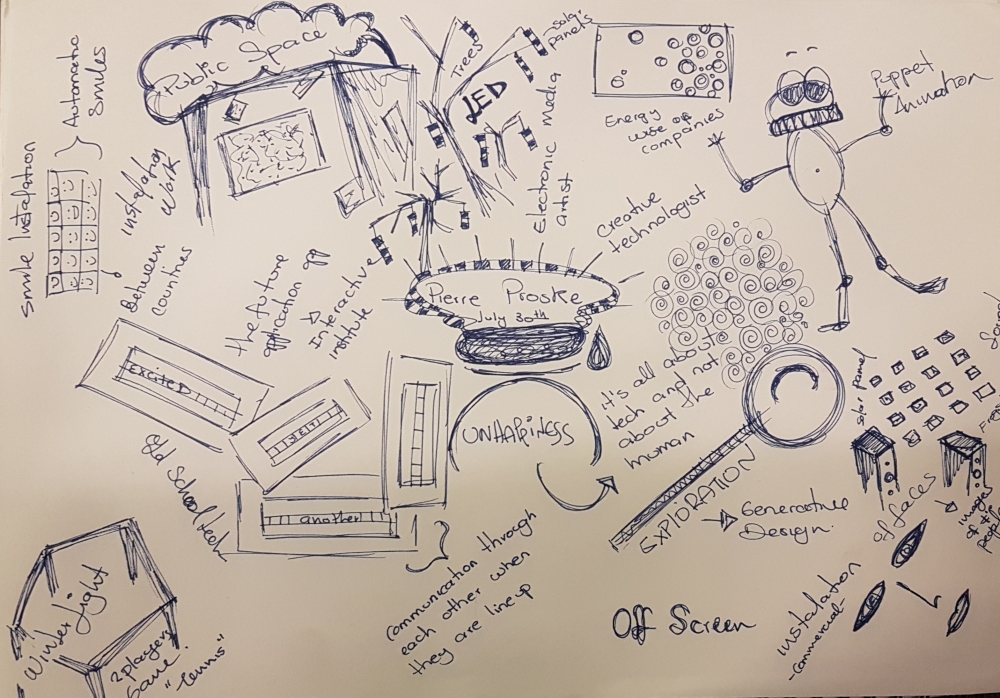 Public Space
Automatic
Smiles
Smile Instalation
instalation
work
Between
Countines
Trees
Solar
panels
LED
Electronic media
artist
Energy
use of
companies
Puppet
Animation
Creative
technologist
Pierre Proske
July 30th
the future
application off
Interactive
institute
EXCITED
another
Old School tech
UNHAPPINESS
it's all about
tech and not
about the
human
EXPLORATION
Generative
Design.
solar panel
of faces
images
of
people
communication through
each other when
they are line up
Winter Light
2 player
Game.
"tennis"
Off Screen
instalation
-commercial-